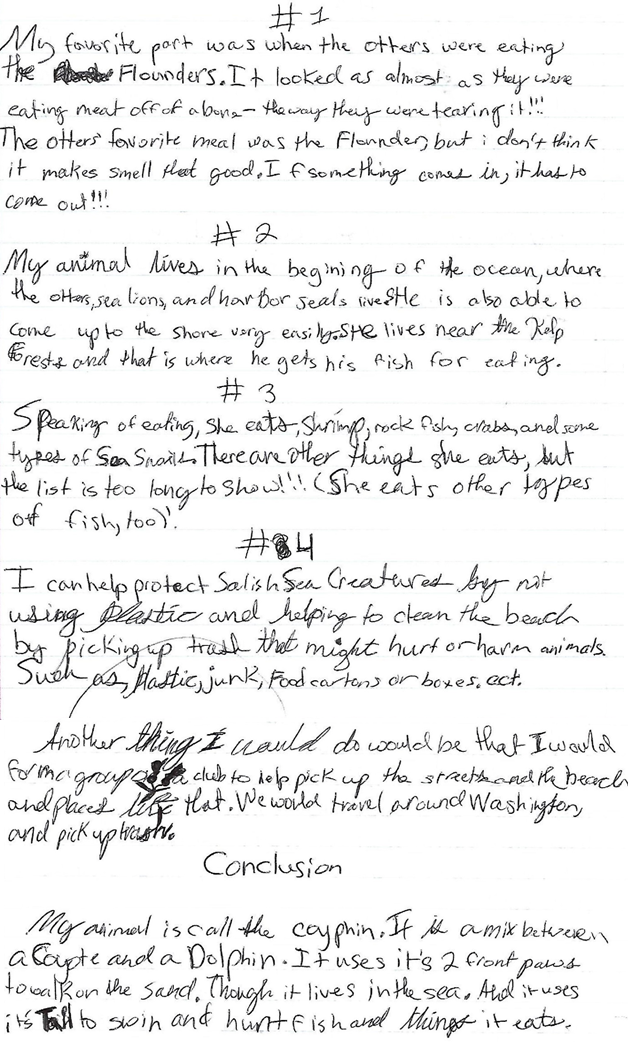 #1
My favorite part was when the otters were eating
the Flounders. It looked as almost as they were
eating meat off of a bone - the way they were tearing it!!!
The otters' favorite meal was the Flounder, but i don't think
it makes smell that good. If something comes in, it has to
come out!!!
#2
My animal lives in the begining of the ocean, where
the otters, sea lions, and harbor seals live. She is also able to
come up to the shore very easily. She lives near the Kelp
Forests and that is where he gets his fish for eating.
#3
Speaking of eating, she eats, Shrimp, rock fish, crabs, and some
types of Sea Snails. There are other things she eats, but
the list is too long to show!!! (She eats other types
of fish, too)!
#4
I can help protect Salish Sea Creatures by not
using plastic and helping to clean the beach
by picking up trash that might hurt or harm animals.
Such as, Plastic, junk, Food cartons or boxes. ect.
Another thing I would do would be that I would
form a group a club to help pick up the streets and the beach
and places like that. We would travel around Washington,
and pick up trash.
Conclusion
My animal is call the coyphin. It is a mix between
a Coyote and a Dolphin. It uses it's 2 front paws
to walk on the sand. Though it lives in the sea. And it uses
it's Tail to swim and hunt fish and things it eats.